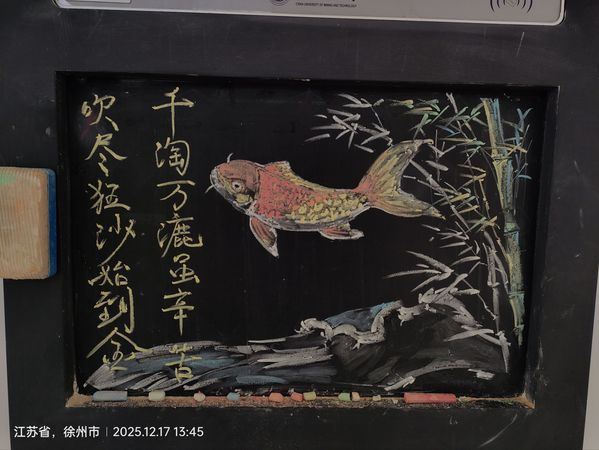 CHINA UNIVERSITY OF MINING AND TECHNOLOGY
千淘万漉虽辛苦
吹尽猛沙始到金
江苏省，徐州市 | 2025.12.17 13:45